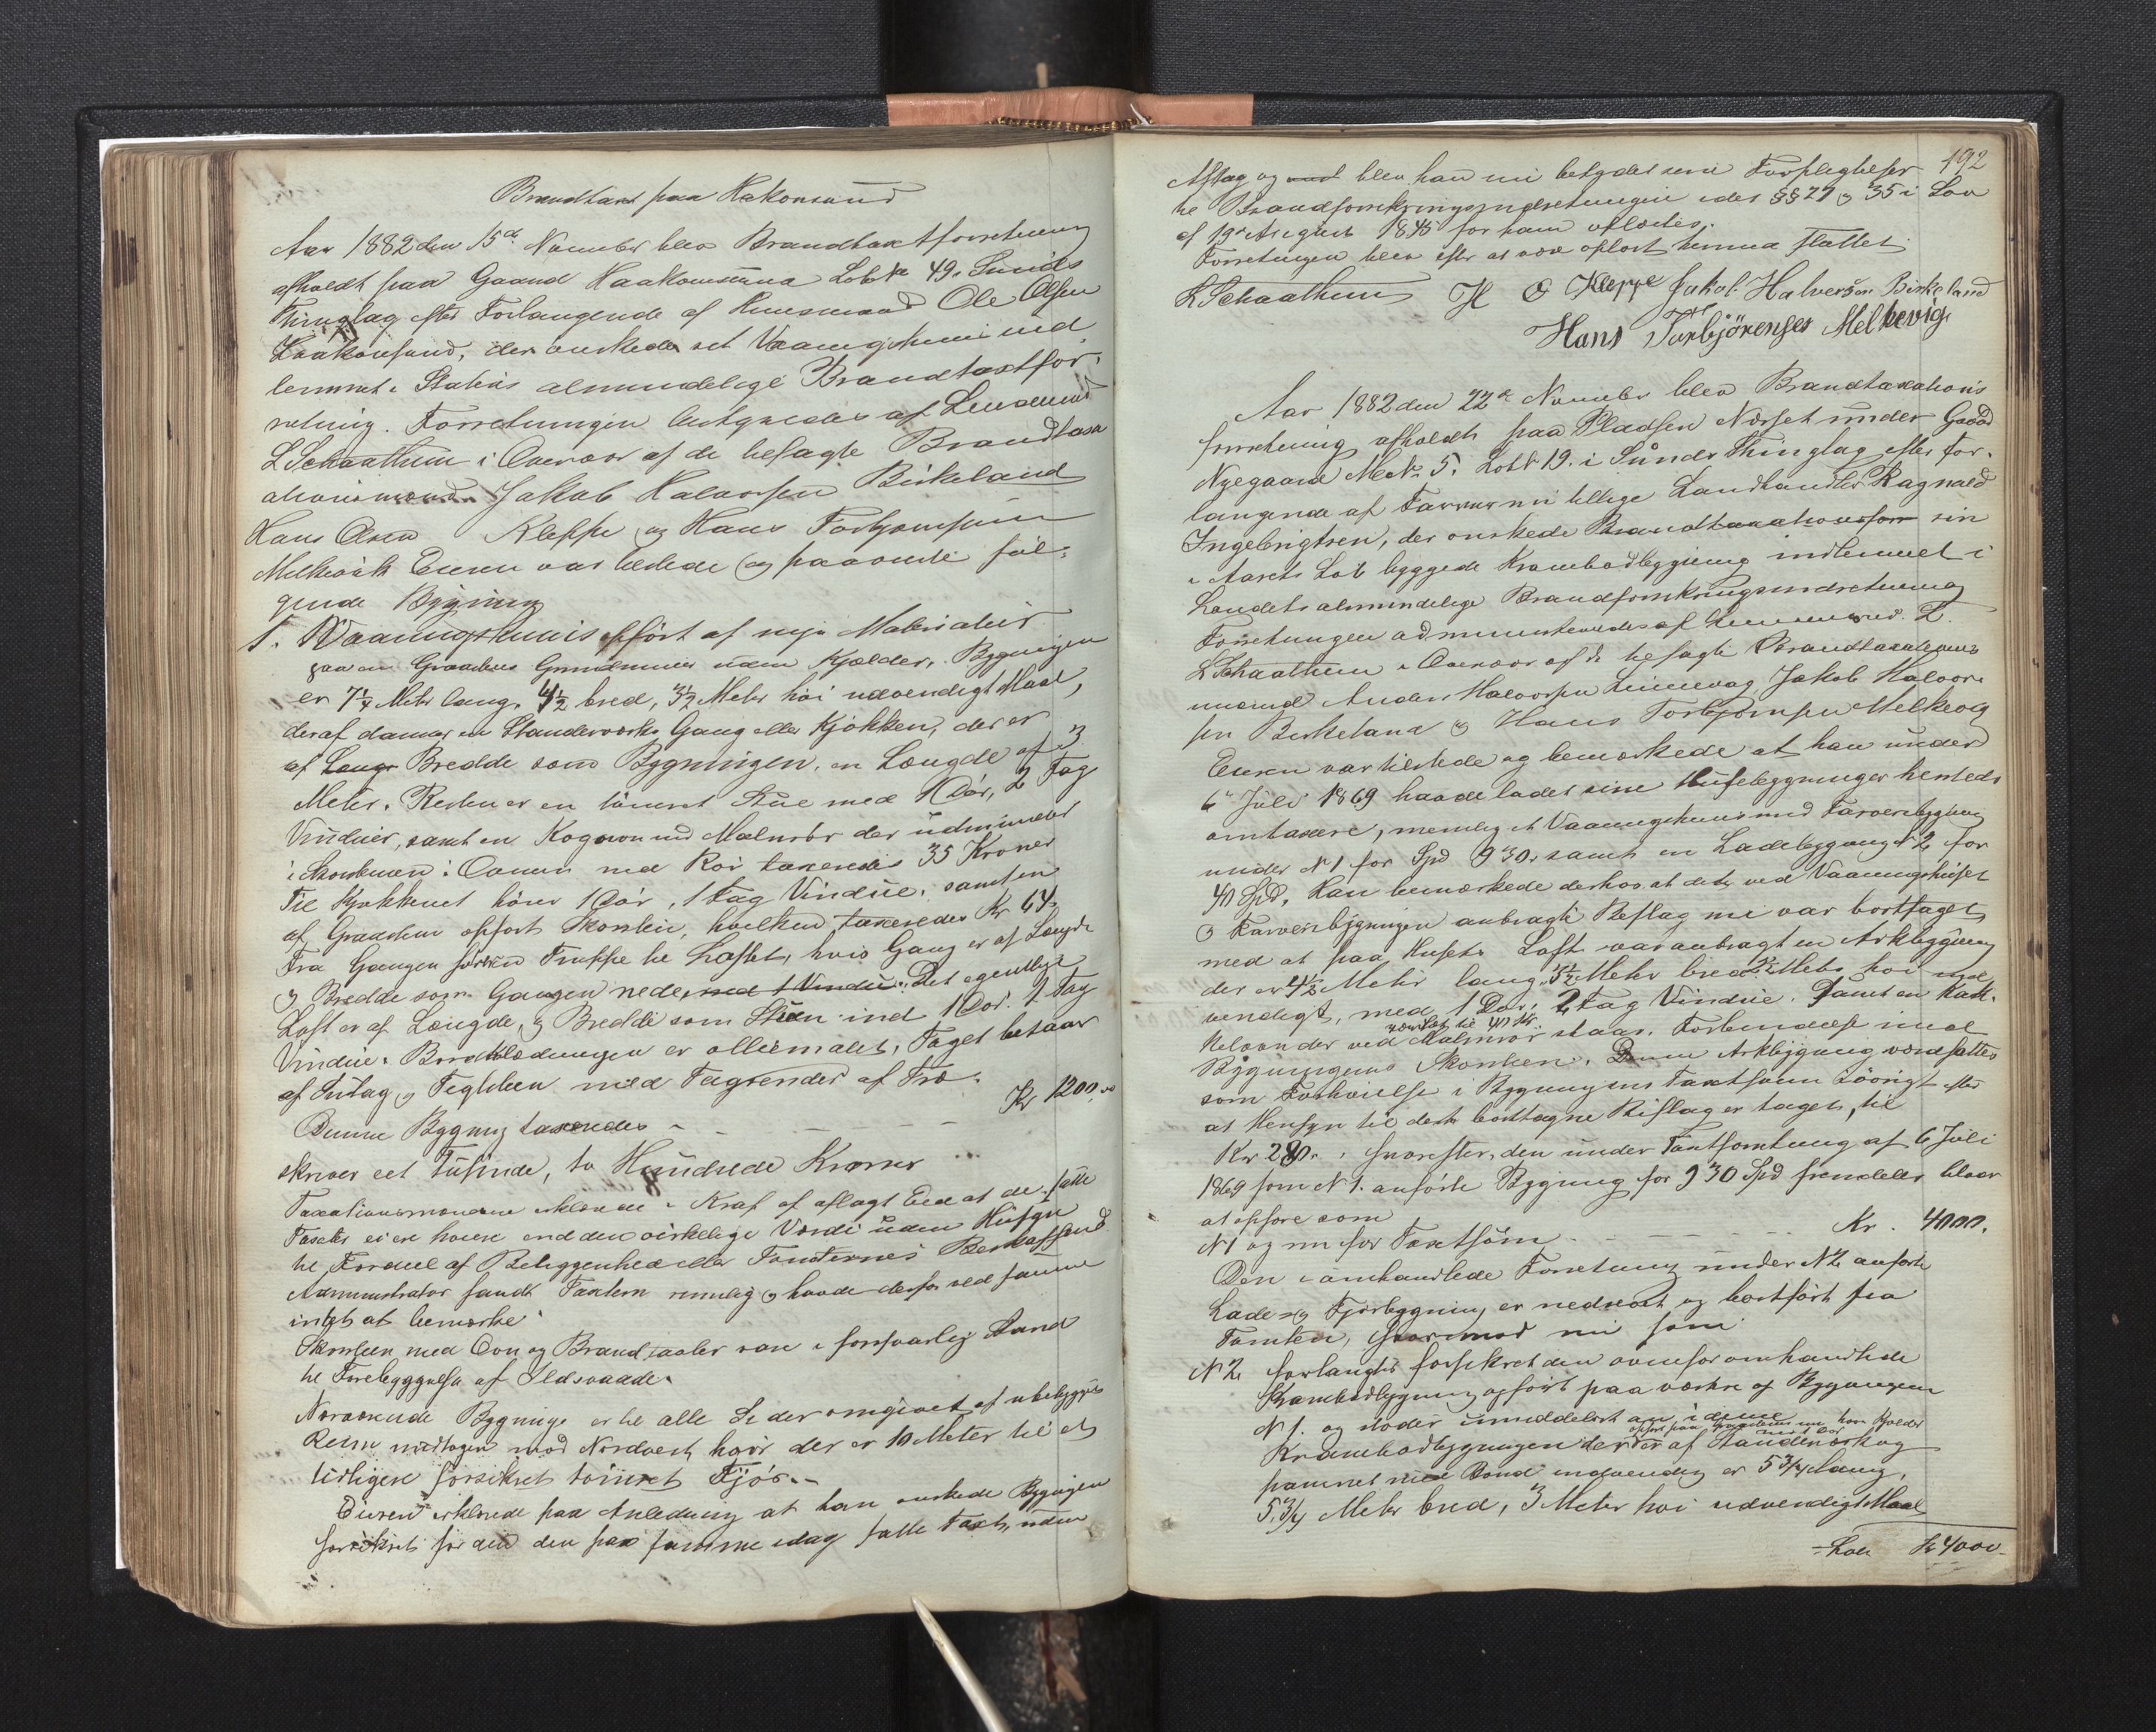 Brandtaxt paa Hakonsund
Aar 1882 den 15de November blev Brandtaxtforretning
afholdt paa Gaard Haakonsund Løb No 49. Sunds
Thinglag efter Forlangende af Huusmand Ole Olsen
Haakonsund, der ønskede et Vaaningshuus ind
lemmet i Statens almindelige Brandtaxtfor-
retning. Forretningen bestyredes af Lensmand
L Schaathun i Overvær af de besagte Brandtaxa
tionsmænd Jakob Halvorsen Birkeland
Hans Olsen Kleppe og Hans Torbjørnsen
Melkevik Eieren var tilstede og paaviste føl-
gende Bygning
1. Vaaningshuus opført af nye Materialier
paa en Graasteens Grundmuur uden Kjælder. Bygningen
er 7¼ Meter lang, 4½ bred, 3½ Meter høi udvendigt Maal,
deraf danner en Standerværks Gang eller Kjøkken, der er
af Længde Bredde som Bygningen, en Længde af 3
Meter. Resten er en tømret Stue med 1 Dør, 2 Fag
Vinduer, samt en Kogeovn med Malmrør der udmunder
i Skorstenen: Ovnen med Rør taxeredes 35 Kroner
Til Kjøkkenet hører 1 Dør, 1 Fag Vindue, samt en
af Graasteen opført Skorsten, hvilken taxeredes Kr 64.
Fra Gangen fører en Trappe til Loftet, hvis Gang er af Længde
og Bredde som Gangen nede, med 1 Vindue. Det egentlige
Loft er af Længde, og Bredde som Stuen ind 1 Dør. 1 Fag
Vindue. Bordklædningen er olliemalet, Taget bestaar
af Sutag og Teglsteen med Tagrender af Træ.
Denne Bygning taxeredes - - - - Kr 1200,00
skriver eet Tusinde, to Hundrede Kroner
Taxationsmændene erklærede i Kraft af aflagt Eed at de satte
Taxter ei ere høiere end den virkelige Værdi uden Hensyn
til Fordeel af Beliggenhed eller Tomternes Beskaffenhed
Administrator fandt Taxten rimelig og havde derfor ved samme
intet at bemærke
Skorsteen med Ovn og Brand var i forsvarlig Stand
til Forebyggelse af Ildsvaade.
Nærværende Bygninge er til alle Sider omgivet af ubebygget
Rum undtagen mod Nordvest, hvor der er 10 Meter til et
tidligere forsikret tømret Fjøs.-
Eieren erklærede paa Anledning at han ønskede Bygningen
forsikret for den paa samme idag satte Taxt, uden
192
Afslag og blev han nu betydet sine Forpligtelser
til Brandforsikringsindretningen idet §§ 27 og 35 i Lov
af 19de August 1845 for ham oplæstes.
Forretningen blev efter at være oplæst hermed sluttet.
L Schaathun H O Kleppe Jakob Halverson Birkeland
Hans Torbjörensen Melkevig
Aar 1882 den 22de November blev Brandtaxations
forretning afholdt paa Pladsen Neset under Gaard
Nygaard Mat No. 5. Løb No 19. i Sunds Thinglag efter For-
langende af Farver nu tillige Landhandler Ragnald
Ingebrigtsen, der ønskede Brandtaxationsfor sin
i Aarets Løb byggede Krambodbygning indlemmet i
Landets almindelige Brandforsikringsindretning
Forretningen administreredes af Lensmand L.
L Schaathun i Overvær af de besagte Brandtaxations
mænd Anders Halvorsen Linnevag Jakob Halvor-
sen Birkeland og Hans Torbjørnsen Melkevig
Eieren var tilstede og bemærkede at han under
6te Juli 1869 havde ladet sine Husebygninger hersteds
omtaxere, nemlig et Vaaningshuus med Farveribygning
under No 1 for Spd 930. samt en Ladebygning No 2 for
40 Spd. Han bemærkede derhos at dets ved Vaaningshuset
og Farveribygningen anbragte Beslag nu var borttaget
med at paa Husets Loft var anbragt en Arkbygning
der er 4½ Meter lang, 3½ Meter bred Meter høi ud-
vendigt, med 1 Dør, 2 Fag Vindue. Samt en Kak-
kelovn der ved Malmrør værdsat til 40 Kr. staar i Forbindelse med
Bygningens Skorsten. Denne Arkbygning værdsattes
som Forhøielse i Bygningens Taxtsum iøvrigt efter
at Hensyn til dets borttagne Beslag er taget, til
Kr 280. hvorefter, den under Taxtforretning af 6 Juli
1869 som No 1. anførte Bygning for 930 Spd fremdeles bliver
at opføre som
No 1 og nu for Taxtsum - - - - - Kr. 4000.
Den i omhandlede Forretning under No 2 anførte
Lade- og Fjøsbygning er nedrevet og bortført fra
Tomten, hvorimod nu som
No 2 forlangtes forsikret den ovenfor omhandlede
Krambodbygning opført paa væstre af Bygningen
No 1. og støder umiddelbart an i denne
opført paa Graasteens
Krambodbygningen der er af Standerværk og
panelet med Bord indvendig er 5 3/4 lang,
5 3/4 Meter bred, 3 Meter høi udvendigt Maal
- Lat. Kr 4000-